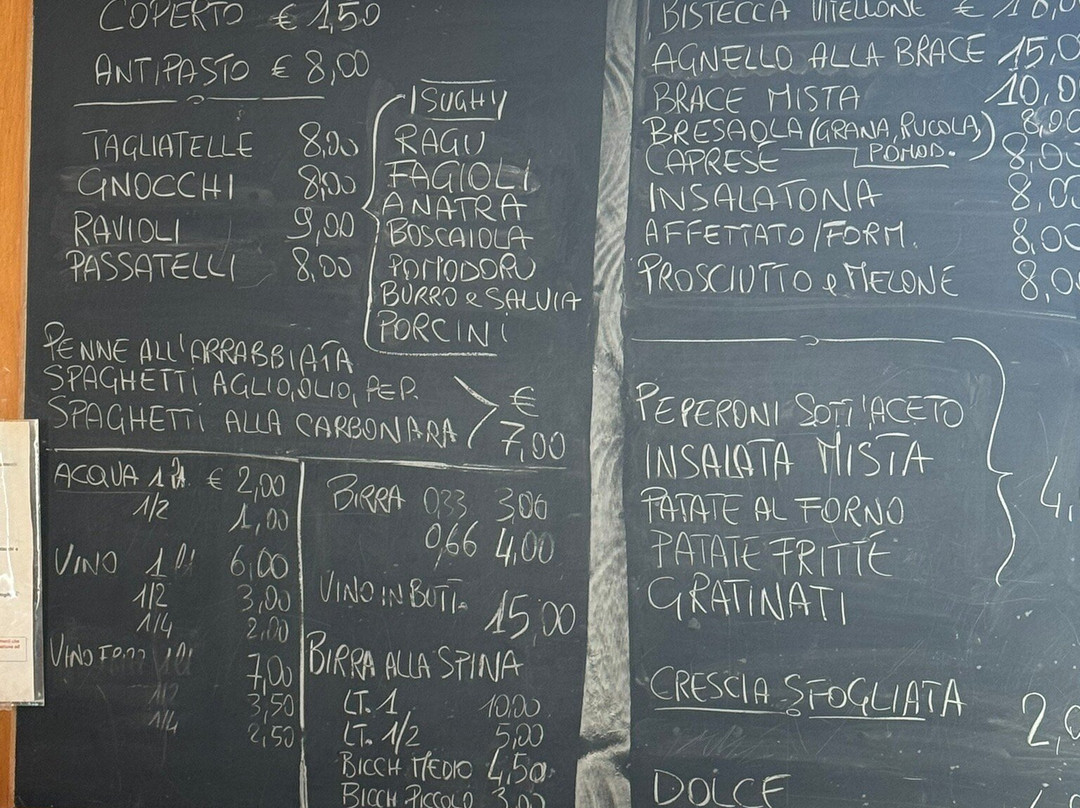 COPERTO € 1,50
ANTIPASTO € 8,00
TAGLIATELLE 8,00
GNOCCHI 8,00
RAVIOLI 9,00
PASSATELLI 8,00
I SUGHI
RAGU
FAGIOLI
ANATRA
BOSCAIOLA
POMODORO
BURRO e SALVIA
PORCINI
PENNE ALL'ARRABBIATA
SPAGHETTI AGLIO,OLIO, PEP.
SPAGHETTI ALLA CARBONARA
€
7,00
ACQUA 1 lt. € 2,00
1/2 1,00
VINO 1 lt 6,00
1/2 3,00
1/4 2,00
VINO FRIZZ 1 lt 7,00
1/2 3,50
1/4 2,50
BIRRA 0,33 3,00
0,66 4,00
VINO IN BOTT. 15,00
BIRRA ALLA SPINA
LT. 1 10,00
LT. 1/2 5,00
BICCH MEDIO 4,50
BICCH PICCOLO 3,00
BISTECCA VITELLONE €
AGNELLO ALLA BRACE 15,0
BRACE MISTA 10,0
BRESAOLA (GRANA, RUCOLA, POMOD.) 8,00
CAPRESE 8,00
INSALATONA 8,00
AFFETTATO/FORM. 8,00
PROSCIUTTO e MELONE 8,0
PEPERONI SOTT'ACETO
INSALATA MISTA
PATATE AL FORNO
PATATE FRITTE
GRATINATI
4,
CRESCIA SFOGLIATA 2,0
DOLCE